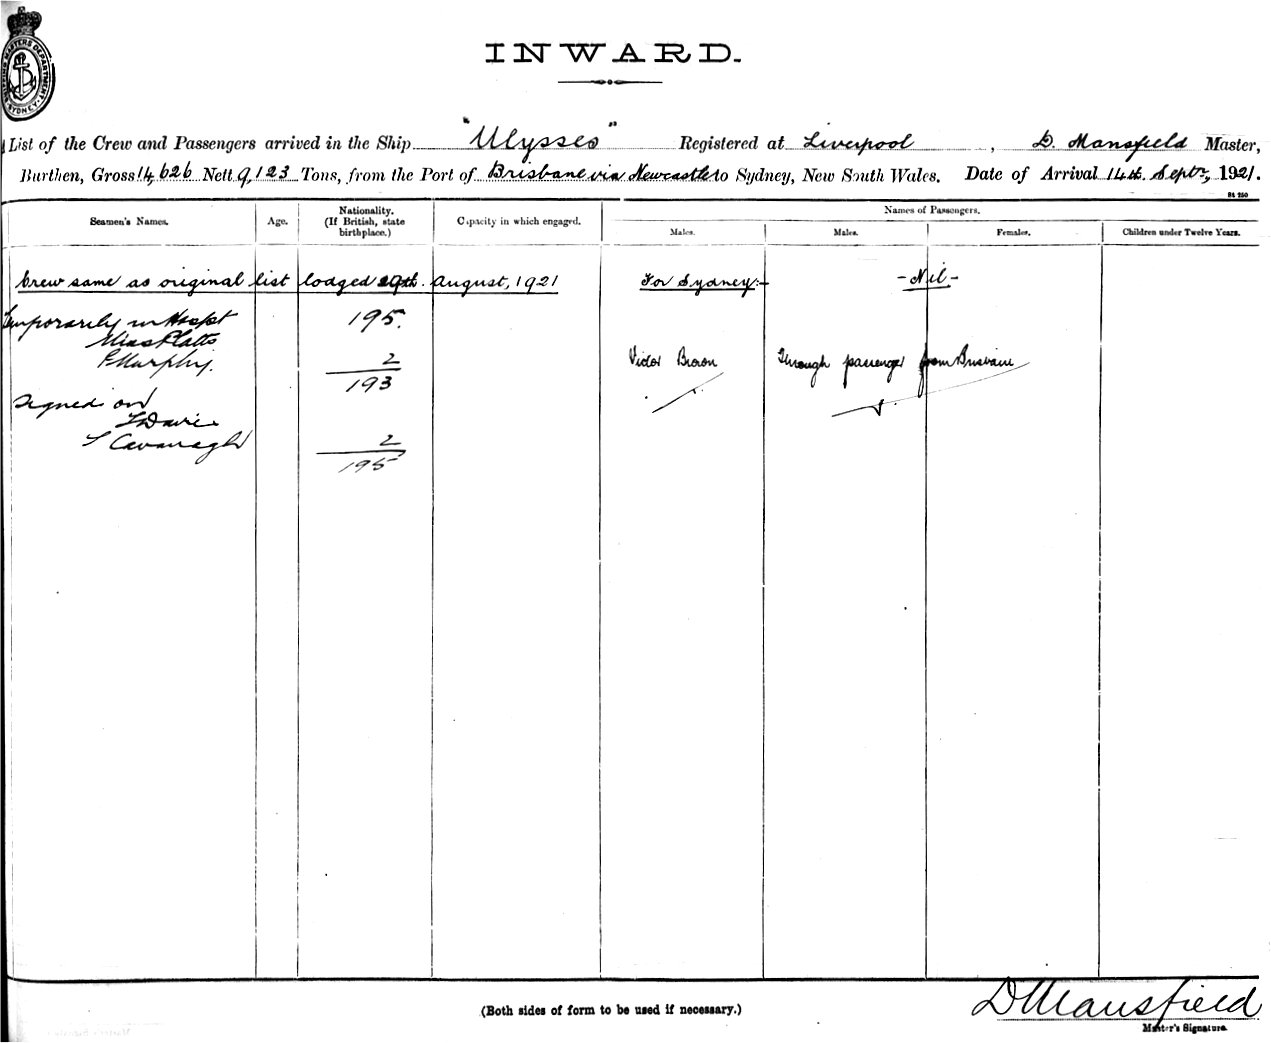 SHIPPING MASTERS DEPARTMENT
SYDNEY
INWARD.
List of the Crew and Passengers arrived in the Ship "Ulysses" Registered at Liverpool, D. Mansfield Master,
Burthen, Gross 14,626 Nett 9,123 Tons, from the Port of Brisbane via Newcastle to Sydney, New South Wales. Date of Arrival 14th. Septr, 1921.
St 250
Names of Passengers.
Seamen's Names. Age. Nationality. (If British, state birthplace.) Capacity in which engaged. Males. Males. Females. Children under Twelve Years.
Crew same as original list lodged 29th. August, 1921 For Sydney:- -Nil-
Temporarily in Hospt 195.
Miss Platts
P Murphy. 2 Victor Brown Through passenger from Brisbane
193
Signed on
Davies
Cavanagh 2
195
(Both sides of form to be used if necessary.)
D Mansfield
Master's Signature.